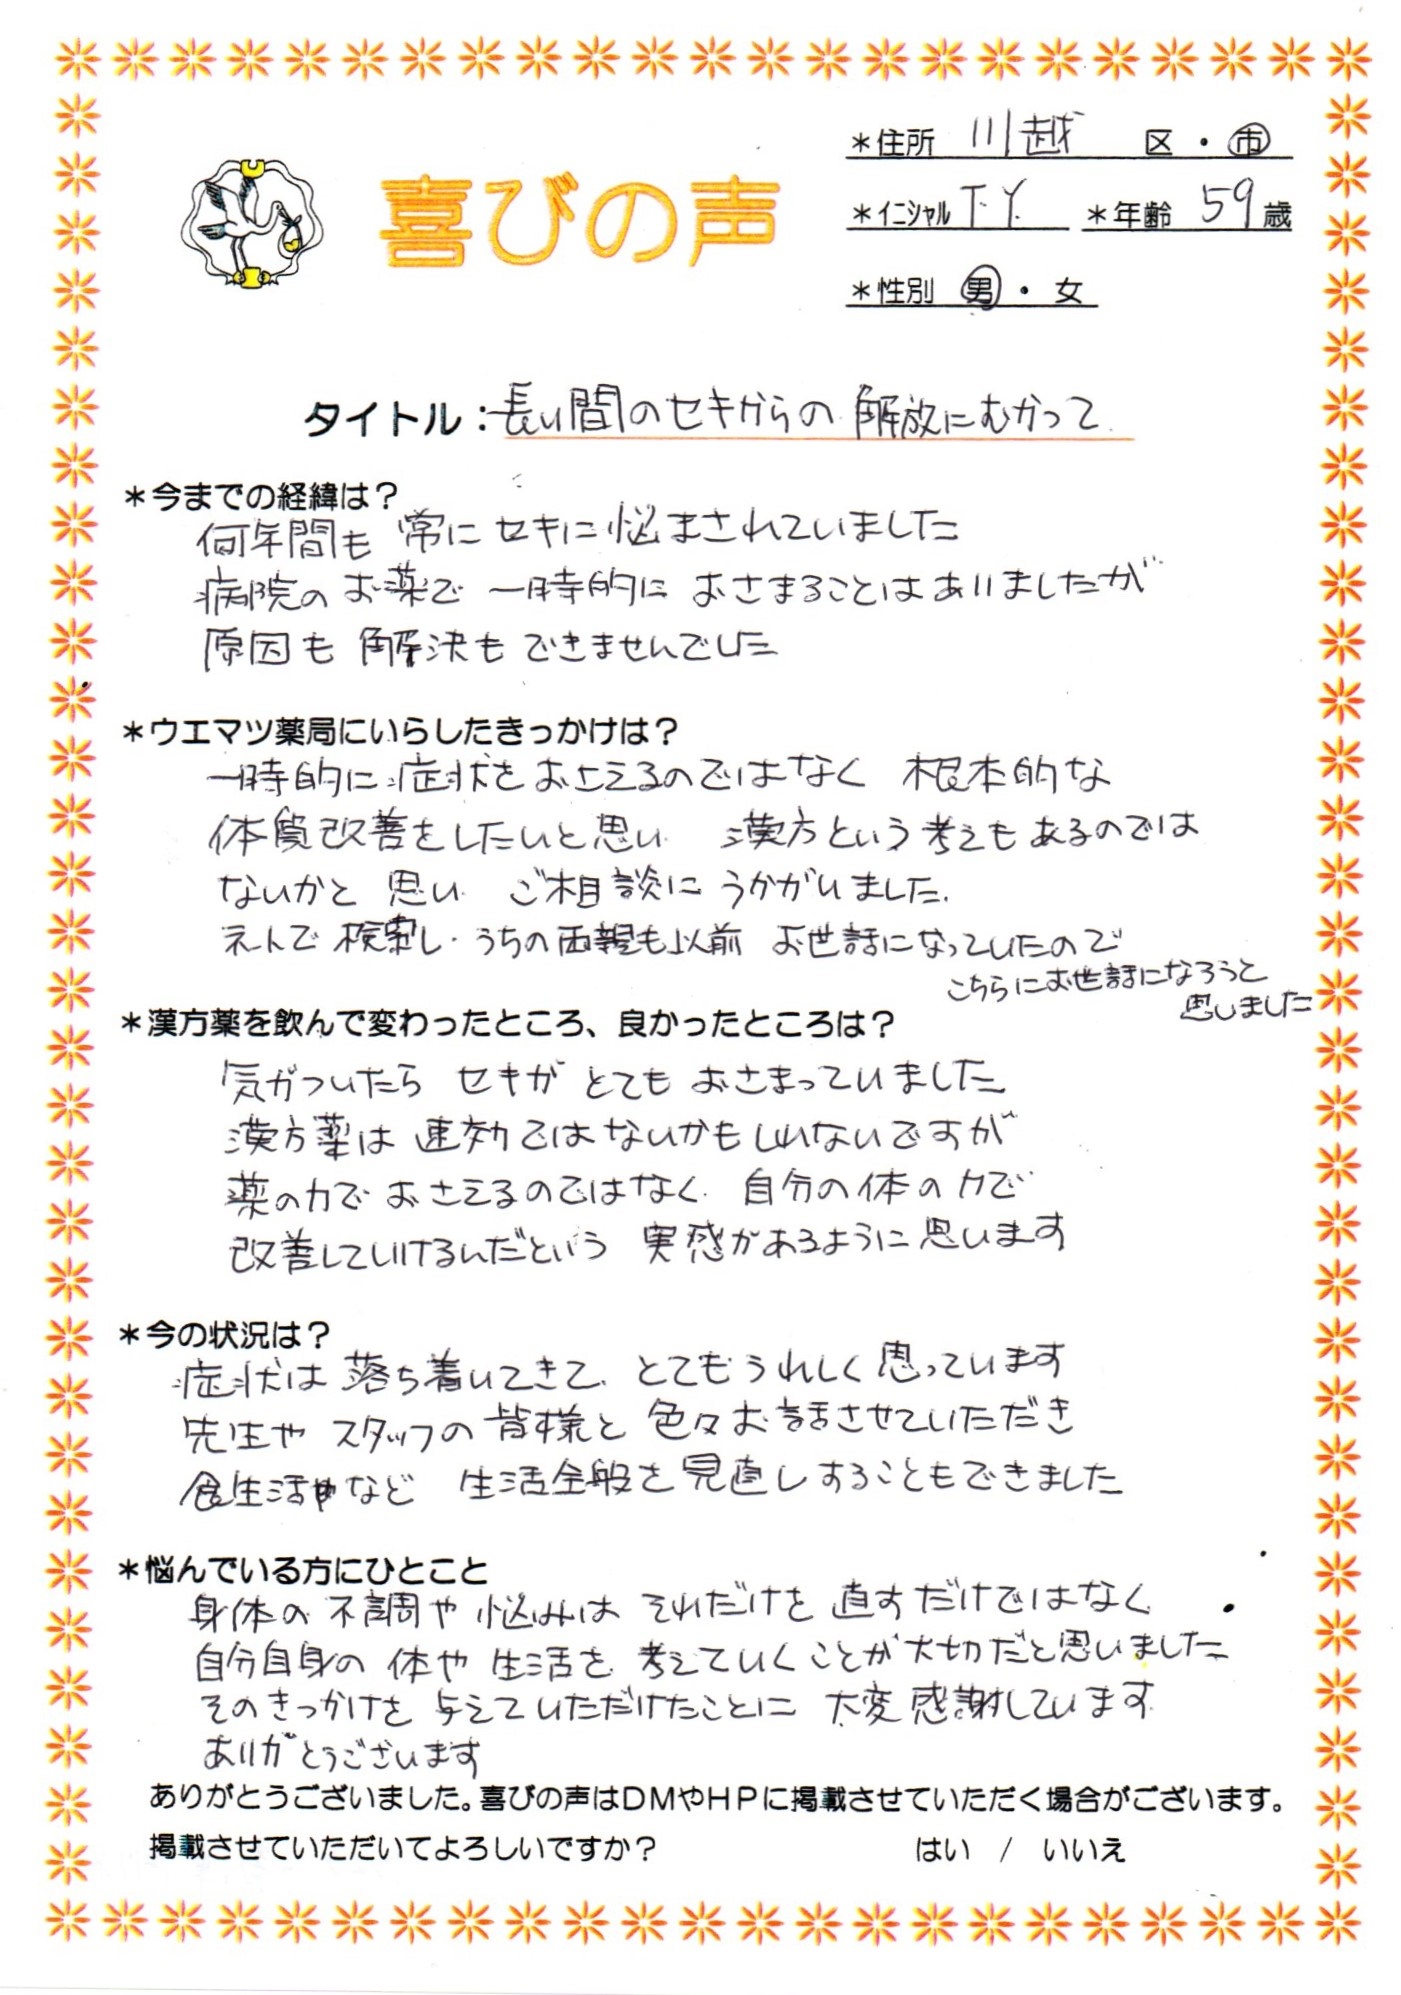 *住所 川越 区・市
喜びの声
*イニシャル T.Y. *年齢 59歳
*性別 男・女
タイトル：長い間のセキからの 解放にむかって
*今までの経緯は？
何年間も 常に セキに 悩まされていました
病院の お薬で 一時的に おさまることは ありましたが
原因も 解決も できませんでした
*ウエマツ薬局にいらしたきっかけは？
一時的に 症状を おさえるのではなく 根本的な
体質改善をしたいと思い 漢方という考えも あるのでは
ないかと 思い ご相談に うかがいました.
ネットで 検索し・うちの両親も以前 お世話になっていたので
こちらにお世話になろうと
思いました
*漢方薬を飲んで変わったところ、良かったところは？
気がついたら セキが とても おさまっていました
漢方薬は 速効ではないかもしれないですが
薬の力で おさえるのではなく 自分の体の力で
改善していけるんだという 実感があるように思います
*今の状況は？
症状は 落ち着いてきて とてもうれしく思っています
先生や スタッフの 皆様と 色々お話させていただき
食生活など 生活全般を 見直しすることもできました
*悩んでいる方にひとこと
身体の 不調や 悩みは それだけを 直すだけではなく
自分自身の 体や 生活を 考えていくことが大切だと思いました
そのきっかけを 与えていただけたことに 大変感謝しています
ありがとうございます
ありがとうございました。喜びの声はDMやHPに掲載させていただく場合がございます。
掲載させていただいてよろしいですか？ はい / いいえ